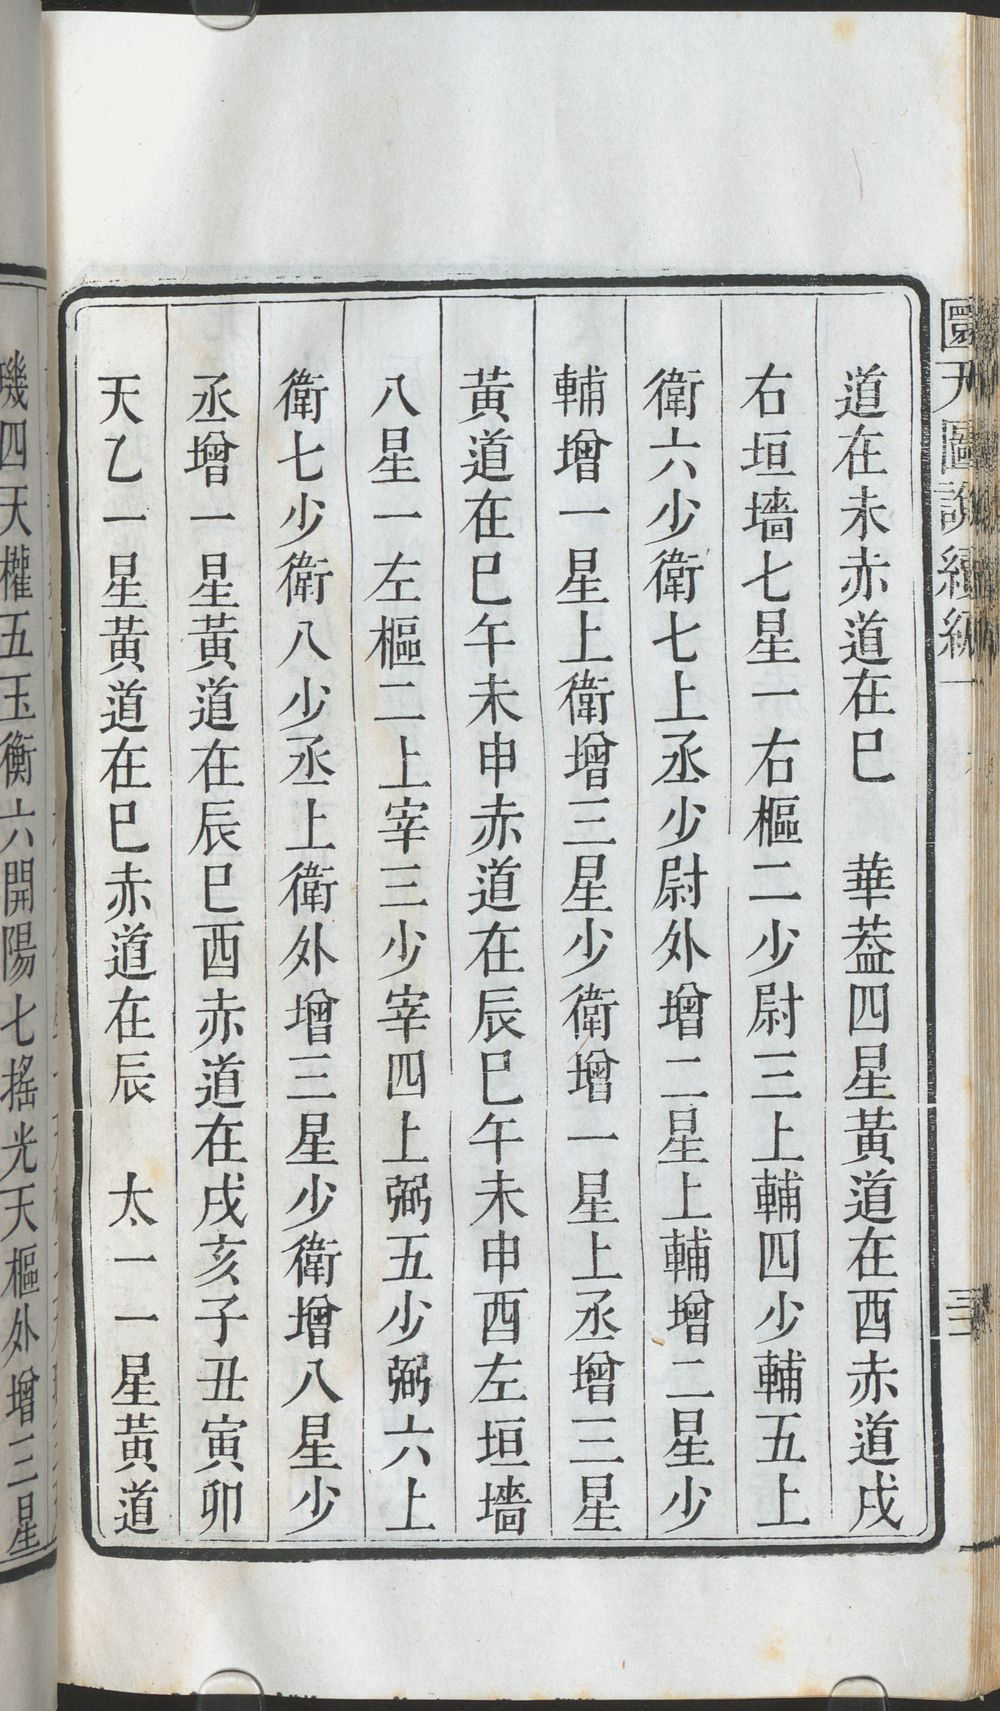 圜天圖說續編一
三
道在未赤道在巳　華蓋四星黃道在酉赤道戌
右垣墻七星一右樞二少尉三上輔四少輔五上
衛六少衛七上丞少尉外增二星上輔增二星少
輔增一星上衛增三星少衛增一星上丞增三星
黃道在巳午未申赤道在辰巳午未申酉左垣墻
八星一左樞二上宰三少宰四上弼五少弼六上
衛七少衛八少丞上衛外增三星少衛增八星少
丞增一星黃道在辰巳酉赤道在戌亥子丑寅卯
天乙一星黃道在巳赤道在辰　太一一星黃道
璣四天權五玉衡六開陽七搖光天樞外增三星